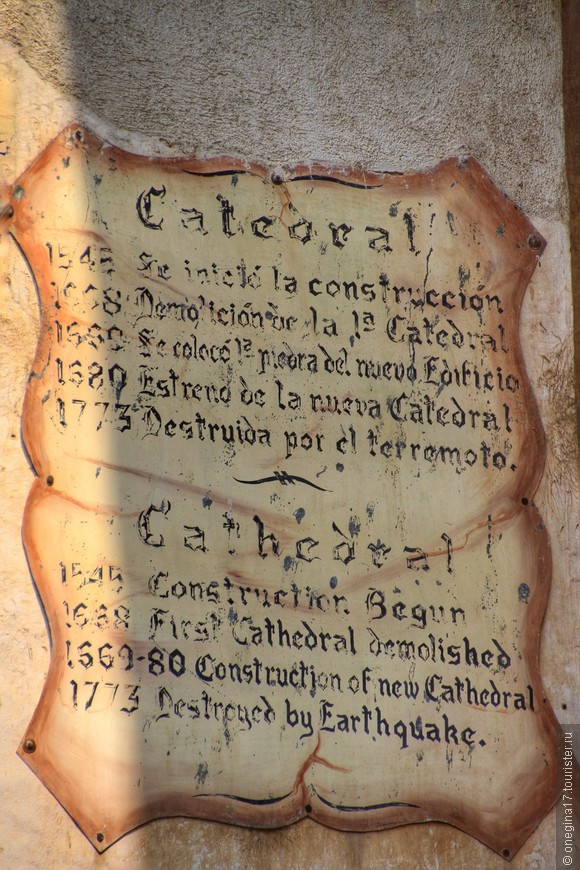 Catedral
1545 Se inició la construcción
1668 Demolición de la 1ª Catedral
1669 Se colocó 1ª piedra del nuevo Edificio
1680 Estreno de la nueva Catedral
1773 Destruida por el terremoto.
Cathedral
1545 Construction Begun
1668 First Cathedral demolished
1669-80 Construction of new Cathedral
1773 Destroyed by Earthquake.
© onegina17.tourister.ru